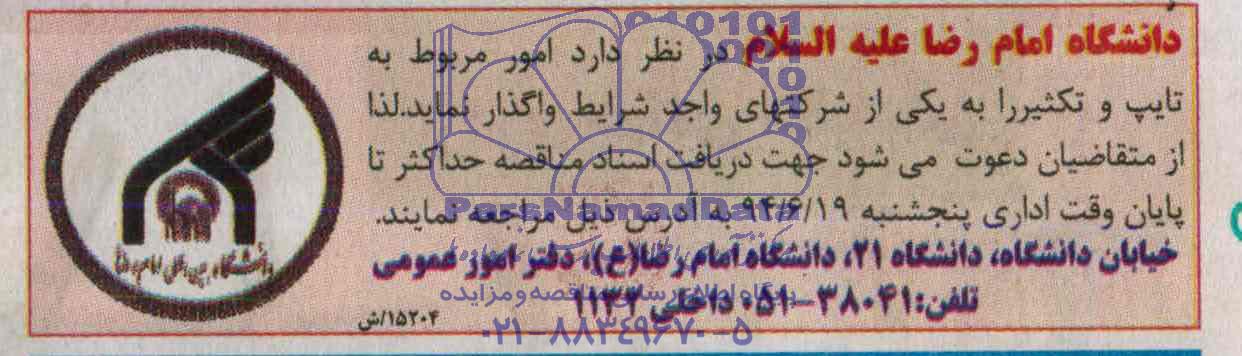 دانشگاه امام رضا علیه السلام در نظر دارد امور مربوط به
تایپ و تکثیررا به یکی از شرکتهای واجد شرایط واگذار نماید.لذا
از متقاضیان دعوت می شود جهت دریافت اسناد مناقصه حداکثر تا
پایان وقت اداری پنجشنبه ۹۴/۶/۱۹ به آدرس ذیل مراجعه نمایند.
خیابان دانشگاه، دانشگاه ۲۱، دانشگاه امام رضا(ع)، دفتر امور عمومی
تلفن:۳۸۰۴۱-۰۵۱ داخلی ۱۱۳۲
۱۵۲۰۴/ش
دانشگاه بین المللی امام رضا
ParsNamadData
۰۲۱-۸۸۳۴۹۶۷۰-۵